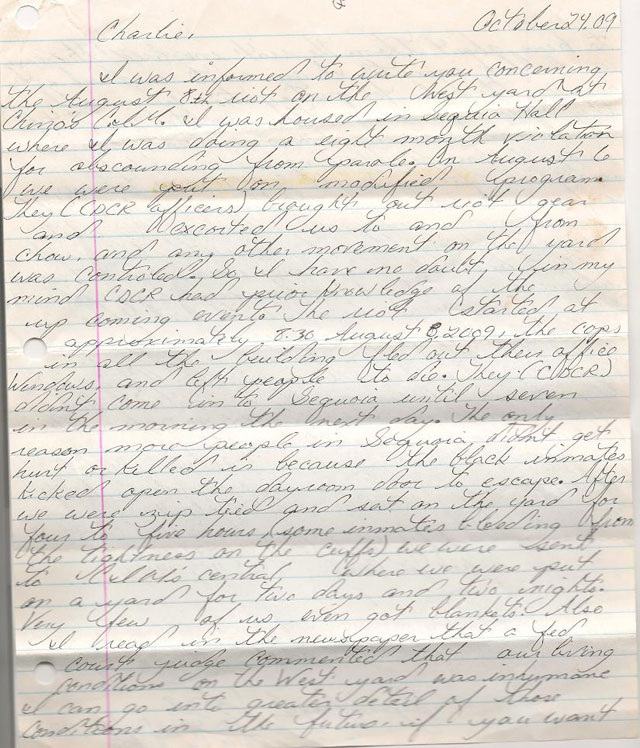 October 24, 09
Charlie,
I was informed to write you concerning
the August 8th riot on the West yard at
Chino's C.I.M. I was housed in Sequoia Hall
where I was doing a eight month violation
for absconding from parole. On August 6
we were put on modified program.
They (CDCR officers) brought out riot gear
and excorted us to and from
chow, and any other movement on the yard
was controled. So, I have no doubt, in my
mind CDCR had prior knowledge of the
up coming event. The riot started at
approximately 8:30 August 8, 2009, the cops
in all the building fled out their office
windows and left people to die. They (CDCR)
didn't come into Sequoia until seven
in the morning the next day. The only
reason more people in Sequoia didn't get
hurt or killed is because the black inmates
kicked open the dayroom door to escape. After
we were zip tied and sat on the yard for
four to five hours (some inmates bleeding from
the tightness on the cuffs) we were sent
to central where we were put
on a yard for two days and two nights.
Very few of us even got blankets. Also
I read in the newspaper that a fed
court judge commented that our living
conditions on the West yard was inhumane
I can go into greater detail of those
conditions in the future, if you want